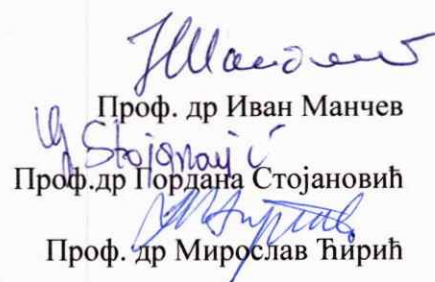 Проф. др Иван Манчев
G Stojanović
Проф.др Гордана Стојановић
Проф. др Мирослав Ћирић